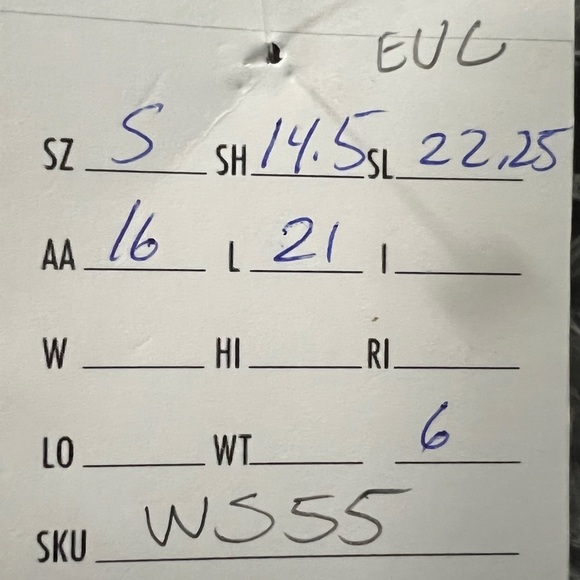 EUC
SZ S SH 14.5 SL 22.25
AA 16 L 21 I
W HI RI
LO WT 6
SKU WS55